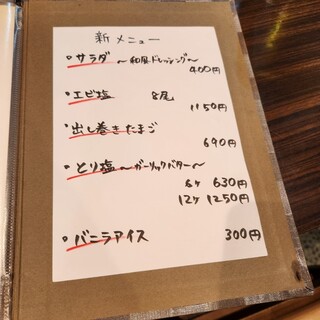 新メニュー
・サラダ 〜和風ドレッシング〜
400円
・エビ塩 8尾
1150円
・出し巻きたまご
690円
・とり塩〜ガーリックバター〜
6ケ 630円
12ケ 1250円
・バニラアイス 300円